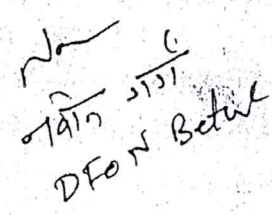 नवीन गर्ग
DFO N Betul